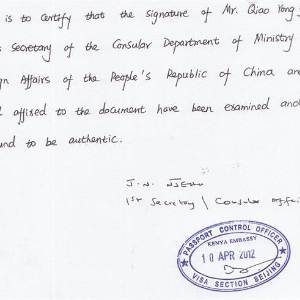 is to certify that the signature of Mr. Qiao Yong
Secretary of the Consular Department of Ministry
gn Affairs of the People's Republic of China are
affixed to the document have been examined and
und to be authentic.
J.N.
1st Secretary / Consular Affair
PASSPORT CONTROL OFFICER
KENYA EMBASSY
10 APR 2012
VISA SECTION BEIJING